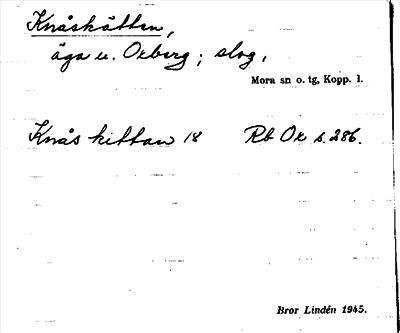 Knåskåttan,
äga u. Oxberg; slog,
Mora sn o. tg, Kopp. l.
Knås kittan 18 Rb Ox s. 286.
Bror Lindén 1945.